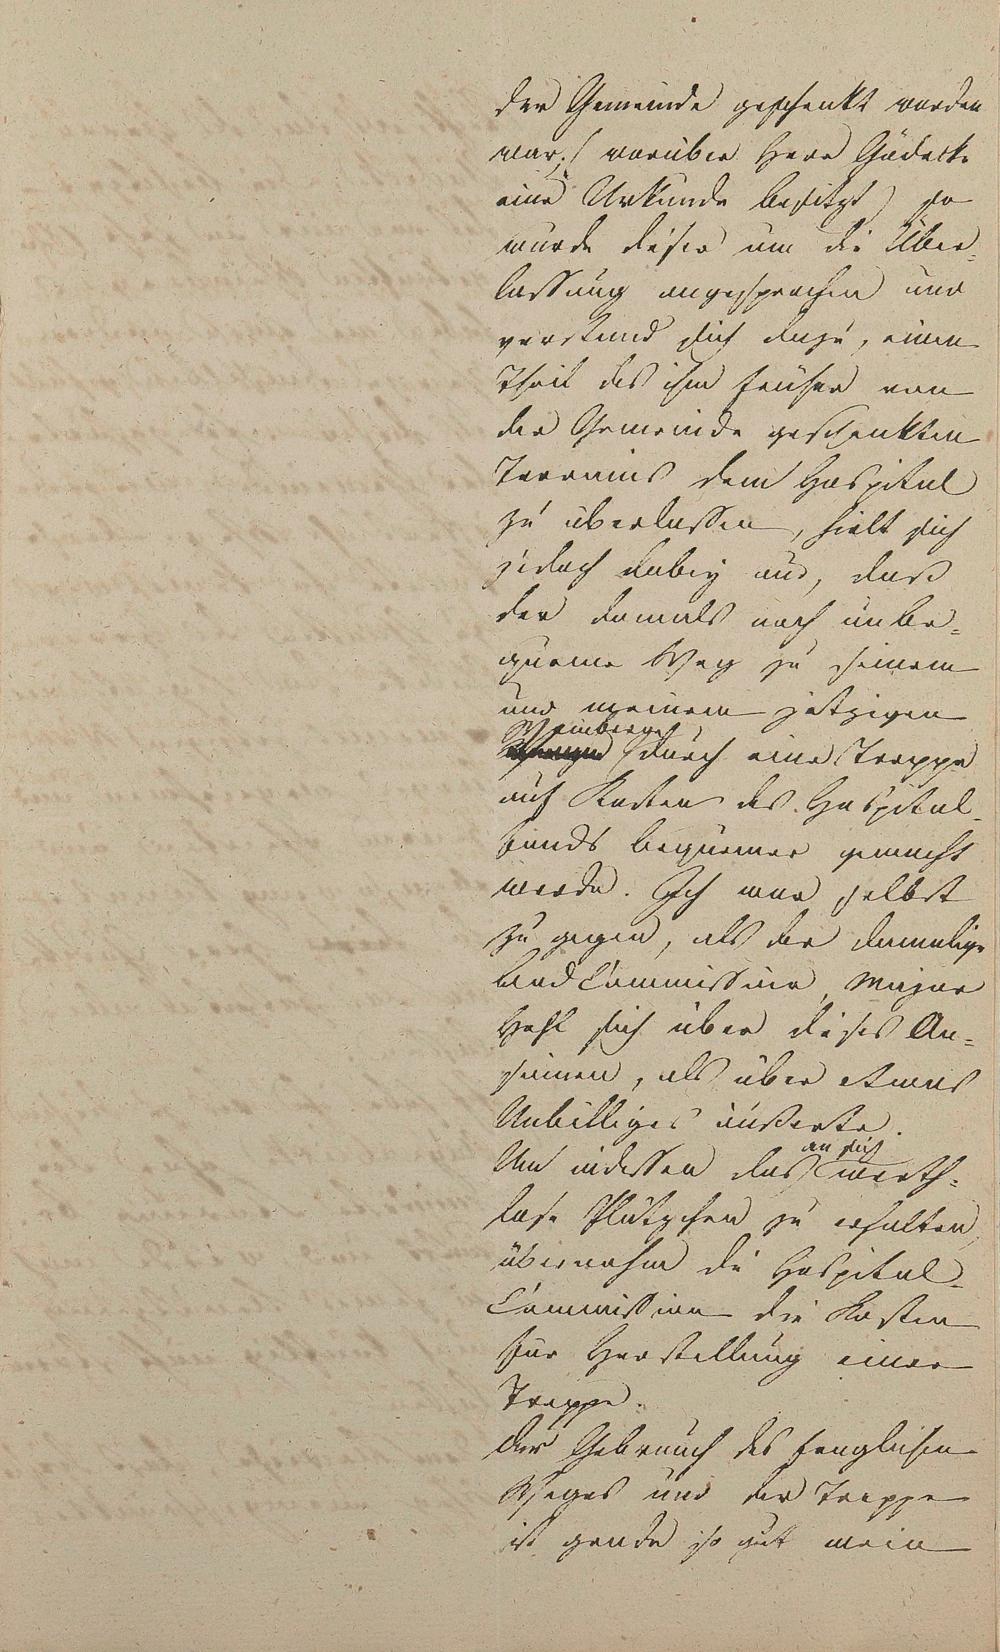 der Gemeinde geschenkt worden
war; (worüber Herr Gödecke
eine Urkunde besitzt) so
wurde dieser um die Über-
lassung angesprochen und
verstand sich dazu, einen
Theil des ihm früher von
der Gemeinde geschenkten
Terrains dem Hospital
zu überlassen, hielt sich
jedoch dabey aus, daß
der damals noch unbe-
queme Weg zu seinem
und meinem jetzigen
Weinberge
durch eine Treppe
auf Kosten des Hospital-
fonds bequemer gemacht
werde. Ich war selbst
zu gegen, als der damalige
Land Commissair, Major
sich über dieses An-
sinnen, als über etwas
Unbilliges äußerte.
an sich
Um indessen das werth-
lose Plätzchen zu erhalten,
übernahm die Hospital-
Commission die Kosten
zur Herstellung einer
Treppe.
Der Gebrauch des fraglichen
Weges und der Treppe
ist gerade so gut mein